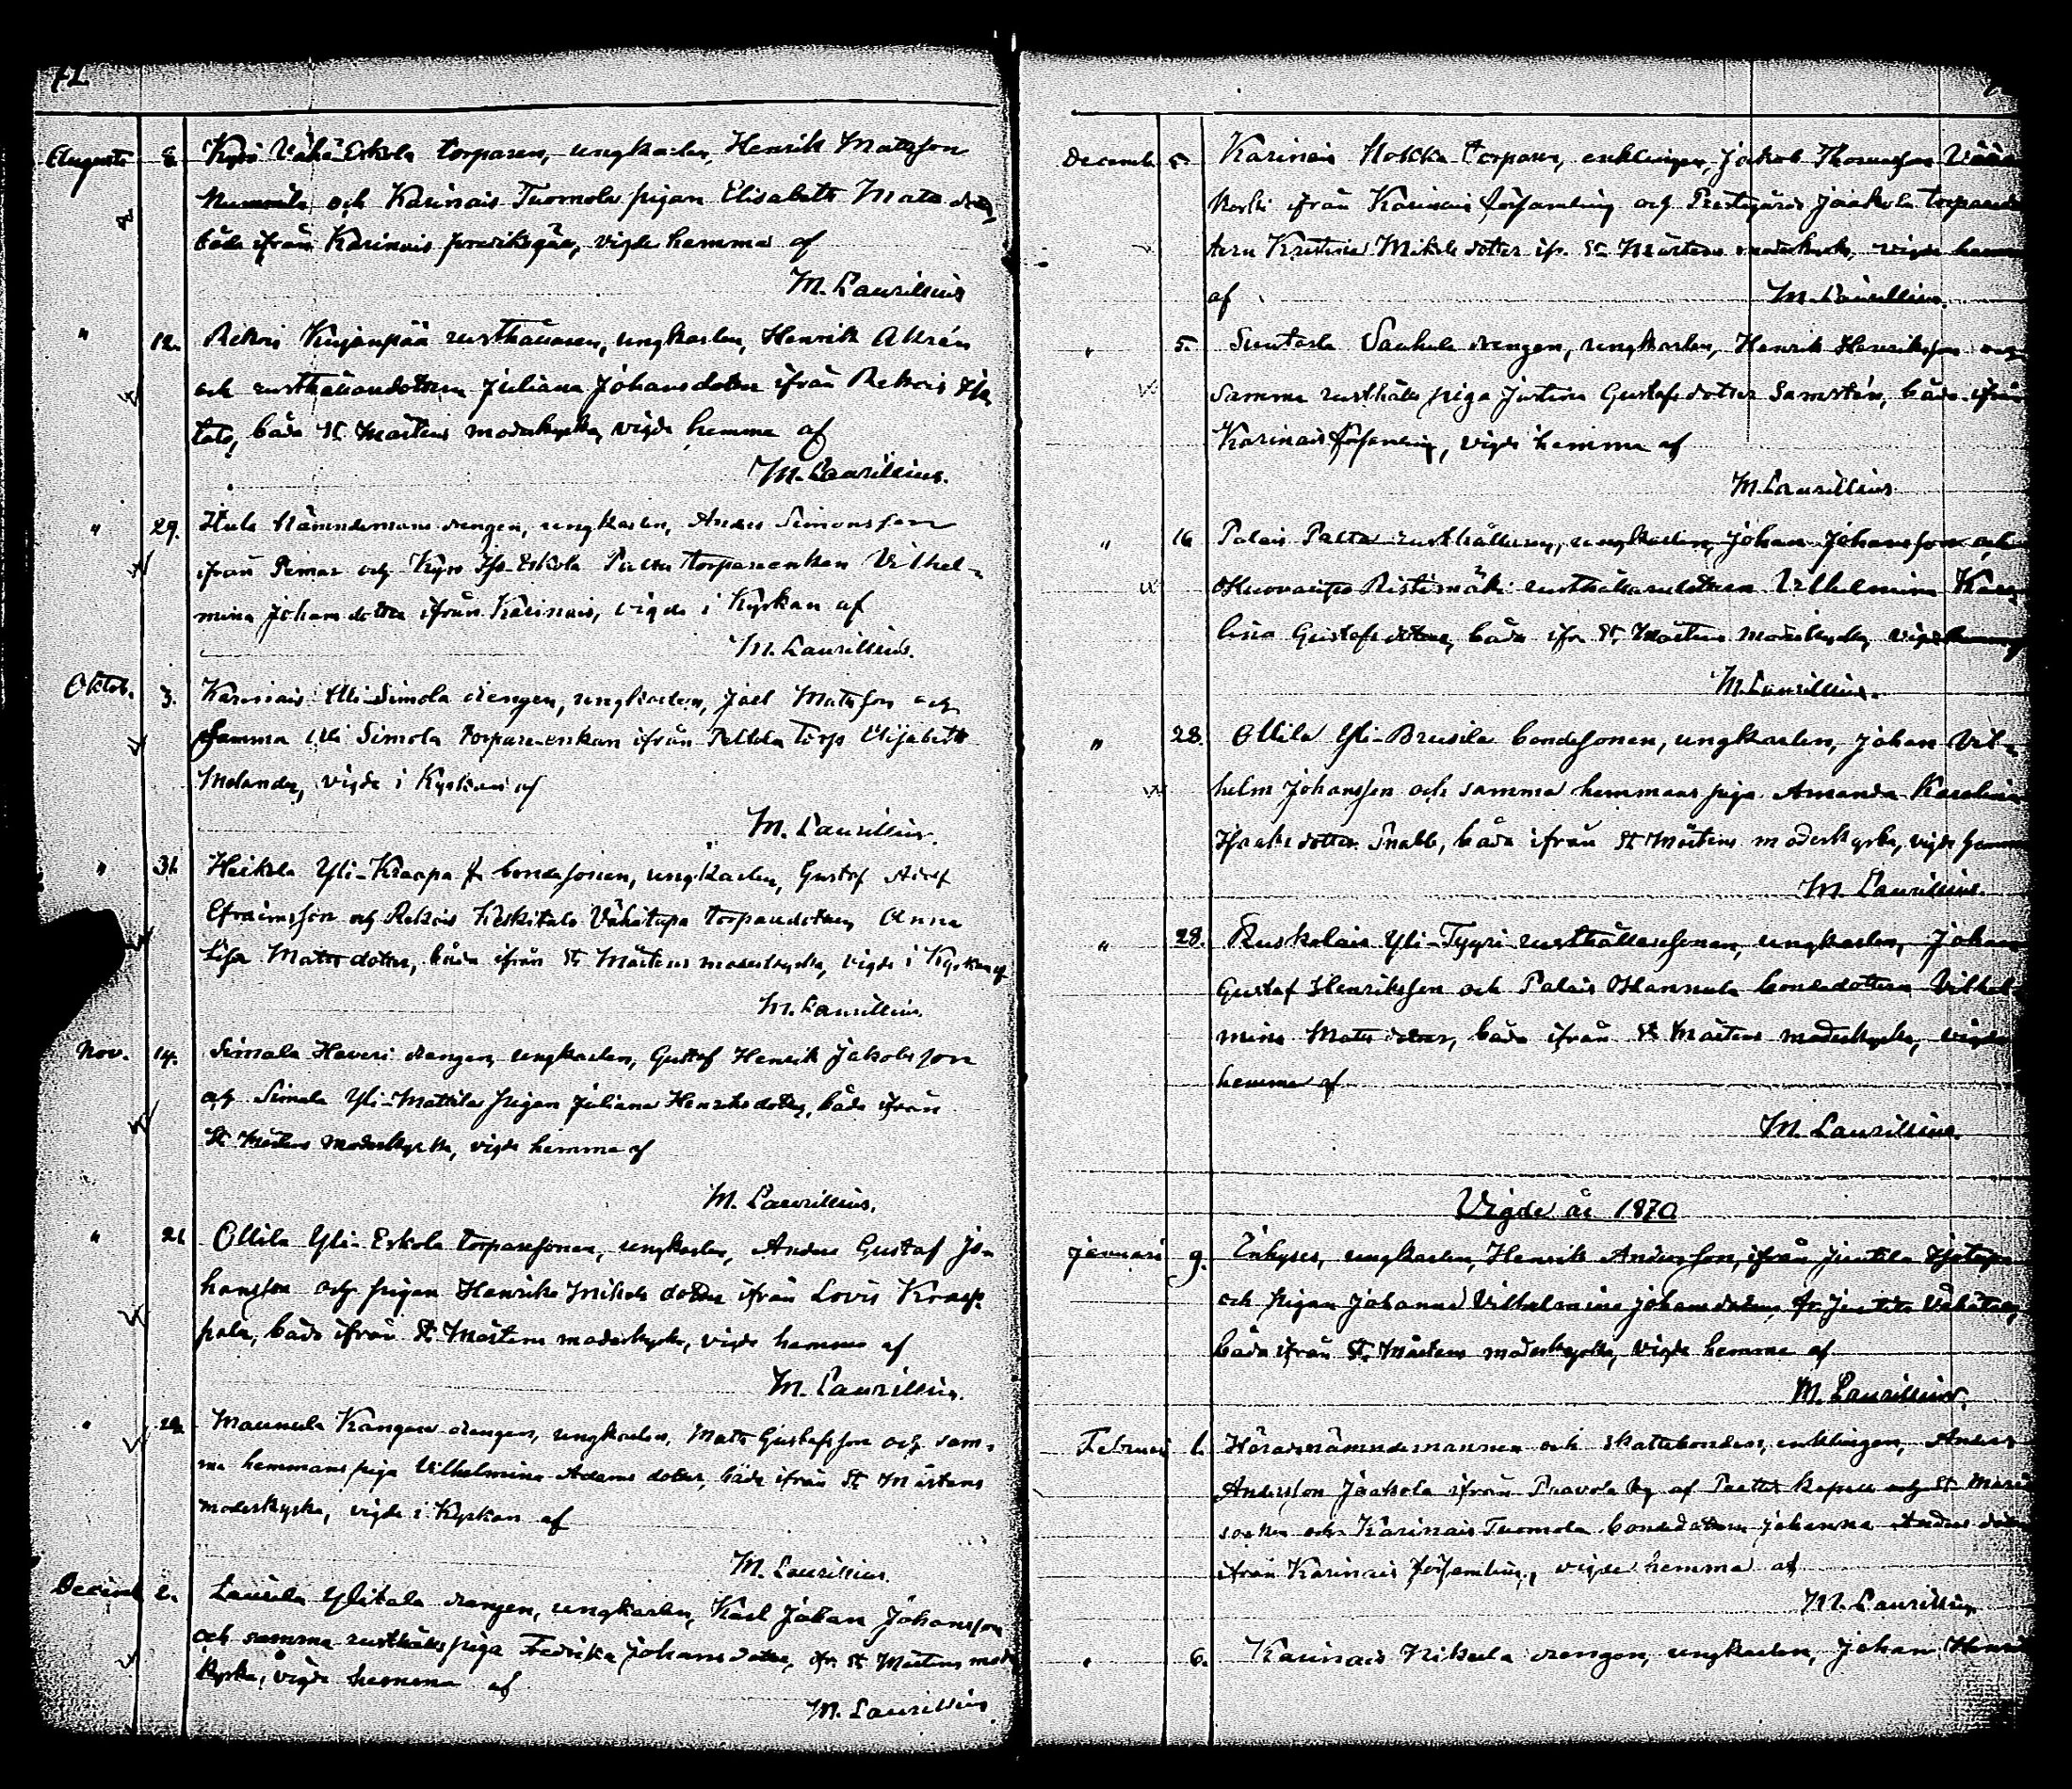 72.
Augusti 8. Kyrö Vähä-Eskola torparen, ungkarlen, Henrik Mattsson
Nummila och Karinais Tuomola pigan Elisabeth Mats dotter,
båda ifrån Karinais, vigde hemma af
M. Laurillius
" 12. Rekois Kirjanpää rusthållaren, ungkarlen, Henrik Akrén
och rusthållaredottren Juliana Johansdotter ifrån Rekois Iso
talo, båda St. Mårtens moderkyrka, vigde hemma af
M. Laurillius.
" 29. nämndemans drengen, ungkarlen, Anders Simonsson
ifrån Pemar och Kyrö Iso-Eskola torpareenkan Vilhel-
mina Johansdotter ifrån Karinais, vigde i Kyrkan af
M. Laurillius.
Oktob. 3. Karinais Uli-Simola drengen, ungkarlen, Joel Matsson och
samma Uli Simola torpare-enkan ifrån Peltola torp Elisabeth
Melander, vigde i Kyrkan af
M. Laurillius.
" 31. Heikola Yli-Kraapa bondesonen, ungkarlen, Gustaf Adolf
Efraimsson och Rekois Keskitalo Vähätupa torparedottren Anna
Lisa Mats dotter, båda ifrån St. Mårtens moderkyrka, vigde i Kyrkan af
M. Laurillius.
Nov. 14. Simala Haveri drengen, ungkarlen, Gustaf Henrik Jakobsson
och Simala Yli-Mattila pigan Juliana Henriksdotter, båda ifrån
St. Mårtens moderkyrka, vigde hemma af
M. Laurillius.
" 21. Ollila Yli-Eskola torparesonen, ungkarlen, Anders Gustaf Jo-
hansson och pigan Henrika Mikels dotter ifrån Lovis Krasp-
pala, båda ifrån St. Mårtens moderkyrka, vigde hemma af
M. Laurillius.
" Maunula Kangas drengen, ungkarlen, Mats Gustafsson och sam-
ma hemmans piga Vilhelmina Adams dotter, båda ifrån St. Mårtens
moderkyrka, vigde i Kyrkan af
M. Laurillius.
Decemb. 2. Laurila Ylitalo drengen, ungkarlen, Karl Johan Johansson
och samma rusthålls piga Fredrika Johans dotter, ifr. St. Mårtens moder
kyrka, vigde hemma af
M. Laurillius.
Decemb. 5. Karinais Nokka torparen, enklingen, Jakob Thomasson
koski ifrån Karinais församling och Prestgårds Jaakola torpare
Kristina Mikels dotter ifr. St. Mårtens moderkyrka, vigde hemma
af M. Laurillius.
" 5. Suutarla Vanhala drengen, ungkarlen, Henrik Henriksson och
samma rusthålls piga Justina Gustafsdotter Samstén, båda ifrån
Karinais församling, vigde hemma af
M. Laurillius
" 16 Palais Palta rusthållaren, ungkarlen, Johan Johansson och
Huovaripes Ristimäki rusthållaredottren Vilhelmina Karo-
lina Gustafs dotter, båda ifr. St. Mårtens moderkyrka, vigde hemma af
M. Laurillius.
" 28. Ollila Yli-Brusila bondesonen, ungkarlen, Johan Vil-
helm Johansson och samma hemmans piga Amanda Karolina
Isaks dotter Snabb, båda ifrån St. Mårtens moderkyrka, vigde hemma
M. Laurillius.
" 28. Ruskalais Yli-Tyyri rusthållaresonen, ungkarlen, Johan
Gustaf Henriksson och Palais Hannula bondedottren Vilhel-
mina Mats dotter, båda ifrån St. Mårtens moderkyrka, vigde
hemma af
M. Laurillius.
Vigde år 1870
Januari 9. Inhyses, ungkarlen, Henrik Andersson, ifrån Juntila Isotupa
och pigan Johanna Vilhelmina Johansdotter, fr. Juntila Vähätupa,
båda ifrån St. Mårtens moderkyrka, vigde hemma af
M. Laurillius.
Februari 1. Häradsnämndemannen och skattebonden, enklingen, Anders
Andersson Jaakola ifrån Paavola by af Paattis kapell och St. Marie
socken och Karinais Tuomola bondedottren Johanna Anders dotter
ifrån Karinais församling, vigde hemma af
M. Laurillius
" 6. Karinais Nikula drengen, ungkarlen, Johan Henrik